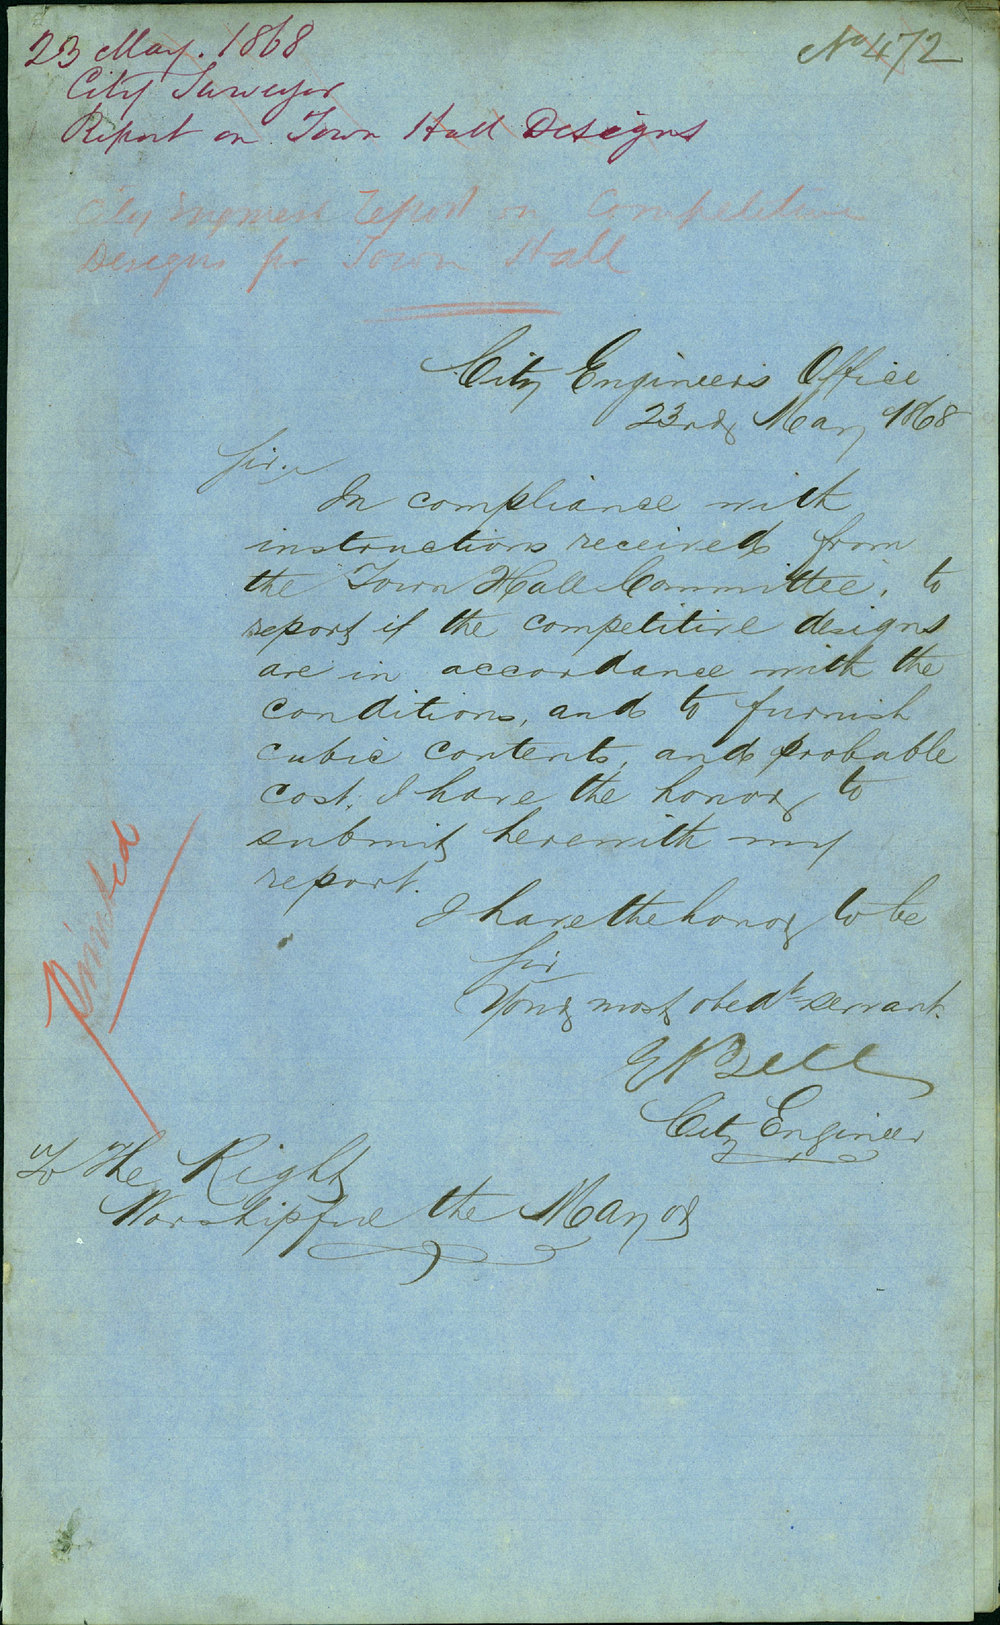 23 May. 1868
No 472
City Surveyor
Report on Town Hall Designs
City Engineers Report on Competitive
Designs for Town Hall
City Engineers Office
23rd May 1868
Sir,
In compliance with
instructions received from
the Town Hall Committee, to
report if the competitive designs
are in accordance with the
conditions, and to furnish
cubic contents, and probable
cost, I have the honor to
submit herewith my
report.
I have the honor to be
Sir
Your most obedt servant.
E Bell
City Engineer
Printed
To The Right
Worshipful the Mayor